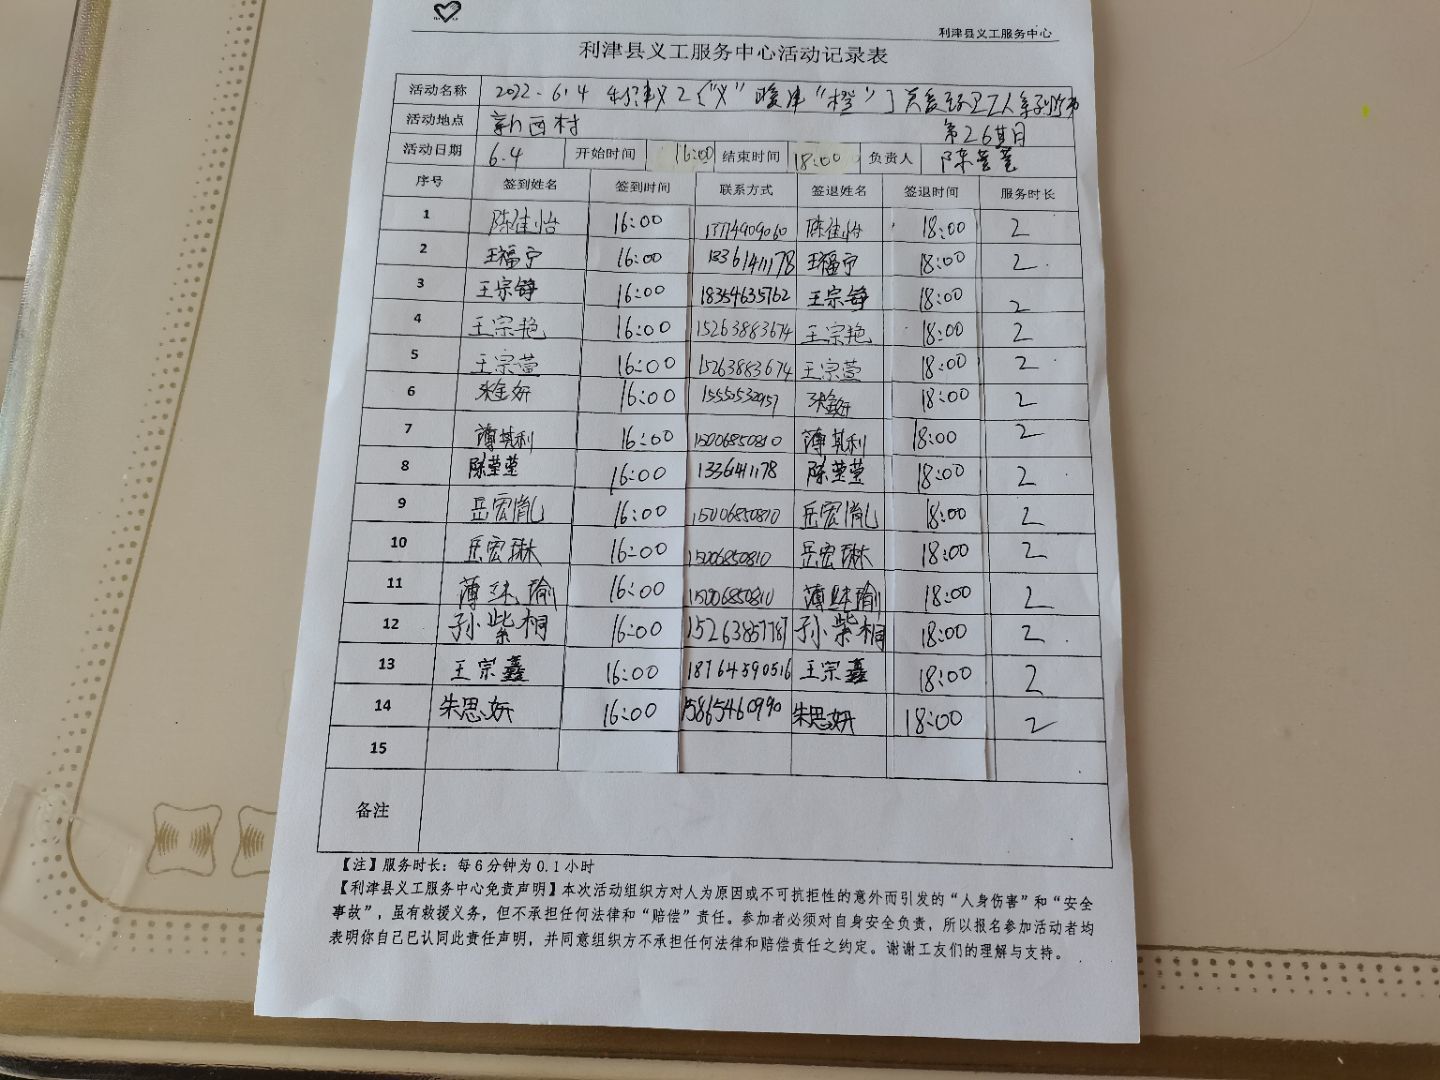 利津县义工服务中心
利津县义工服务中心活动记录表
活动名称 2022.6.4 利津义工《"义"暖津"橙"》关爱环卫工人亲子
活动地点 新西村 第26期
活动日期 6.4 开始时间 16:00 结束时间 18:00 负责人 陈莹莹
序号 签到姓名 签到时间 联系方式 签退姓名 签退时间 服务时长
1 陈佳怡 16:00 陈佳怡 18:00 2
2 王福宁 16:00 13361411178 王福宁 18:00 2
3 王宗铮 16:00 18354635762 王宗铮 18:00 2
4 王宗艳 16:00 15263883674 王宗艳 18:00 2
5 王宗萱 16:00 15263883674 王宗萱 18:00 2
6 张金妍 16:00 张金妍 18:00 2
7 薄其利 16:00 15006850810 薄其利 18:00 2
8 陈莹莹 16:00 1336141178 陈莹莹 18:00 2
9 岳宏胤 16:00 15006850810 岳宏胤 18:00 2
10 岳宏琳 16:00 15006850810 岳宏琳 18:00 2
11 薄 瑜 16:00 15006850810 薄 瑜 18:00 2
12 孙紫桐 16:00 15263857787 孙紫桐 18:00 2
13 王宗鑫 16:00 18764590516 王宗鑫 18:00 2
14 朱思妍 16:00 15865460990 朱思妍 18:00 2
15
备注
【注】服务时长：每6分钟为0.1小时
【利津县义工服务中心免责声明】本次活动组织方对人为原因或不可抗拒性的意外而引发的“人身伤害”和“安全
事故”，虽有救援义务，但不承担任何法律和“赔偿”责任。参加者必须对自身安全负责，所以报名参加活动者均
表明你自己已认同此责任声明，并同意组织方不承担任何法律和赔偿责任之约定。谢谢工友们的理解与支持。